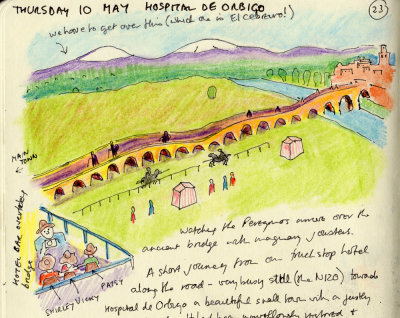 THURSDAY 10 MAY HOSPITAL DE ORBIGO
23
we have to get over this (which one is El Cebreiro!)
MAIN TOWN
HOTEL BAR overlooking bridge
SHIRLEY VICKY PATSY
watching the Peregrinos across over the
ancient bridge with imaginary jousters.
A short journey from our truck stop hotel
along the road - very busy still (the N120) towards
Hospital de Orbigo a beautiful small town with a